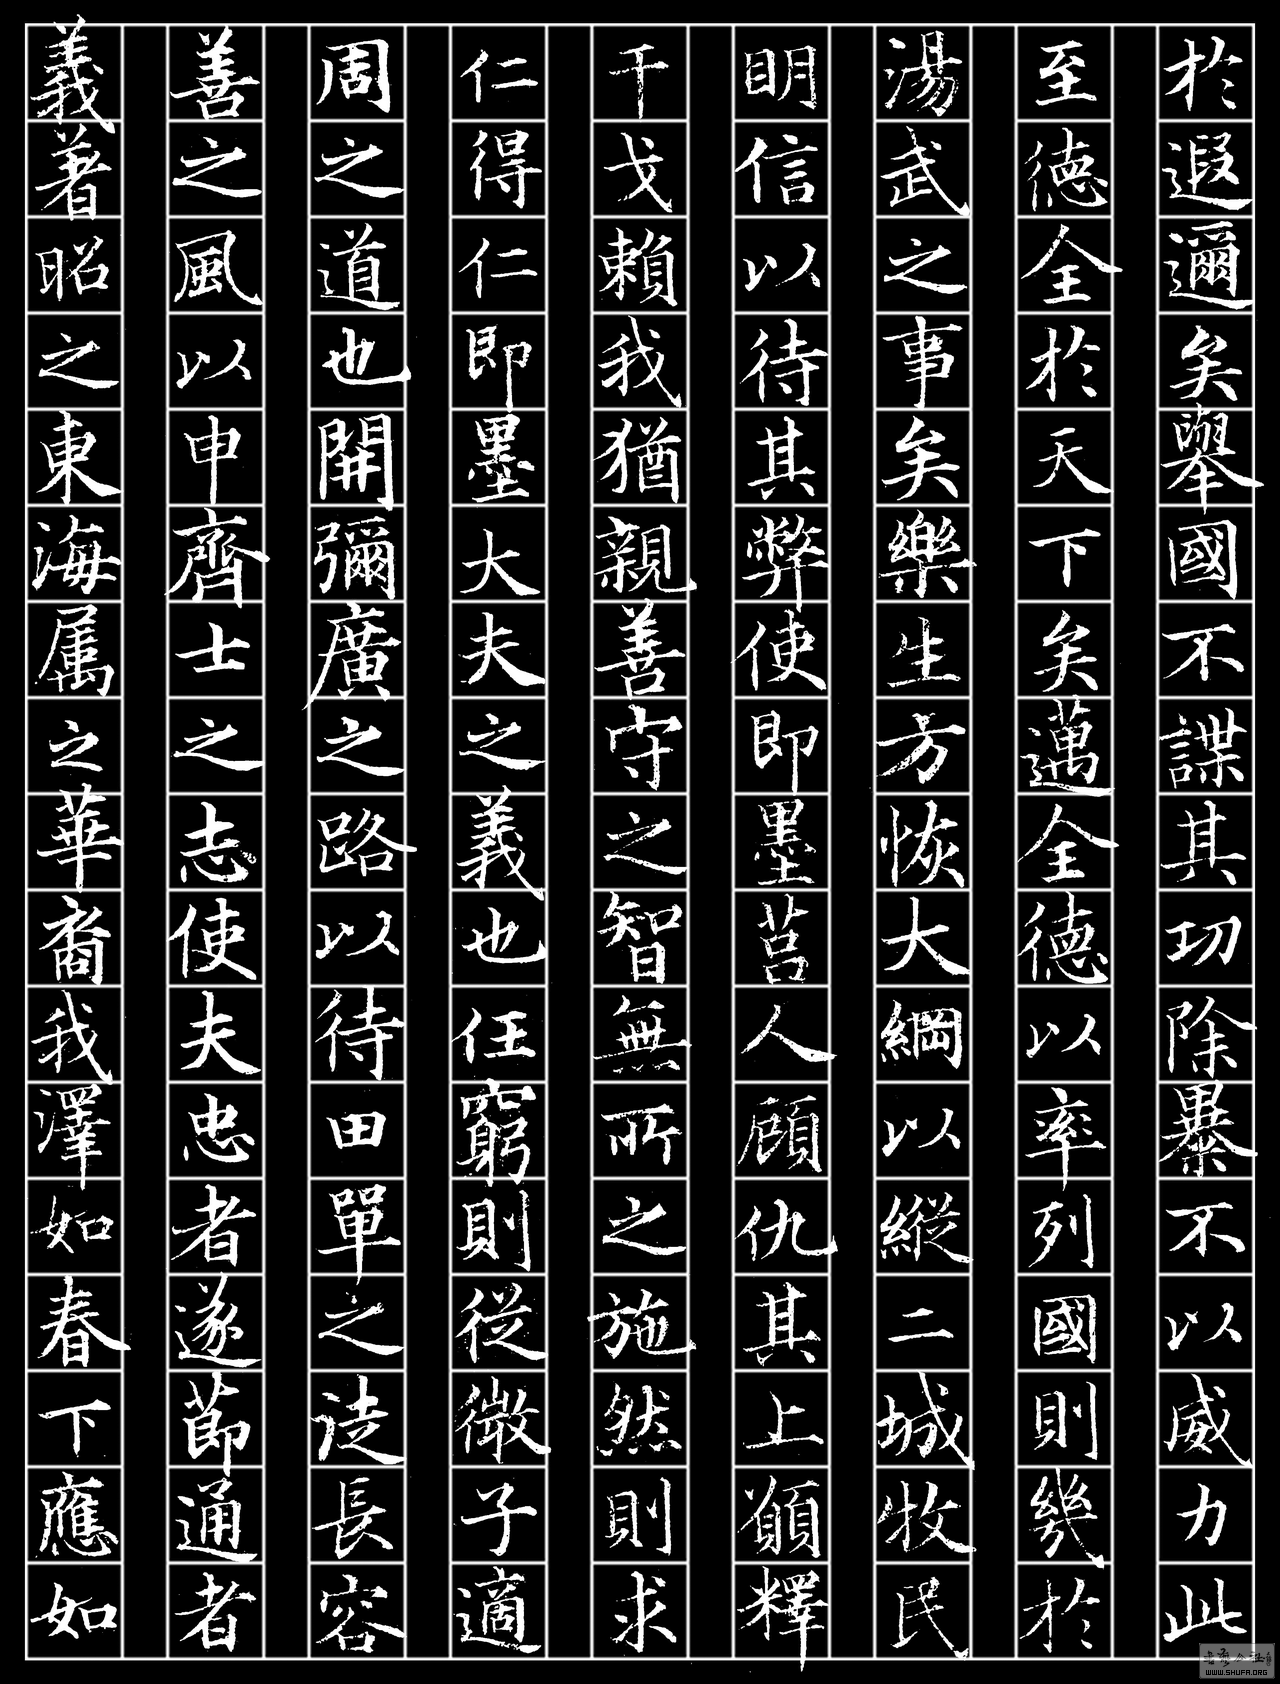 於遐邇矣舉國不謀其功除暴不以威力此
至德全於天下矣邁全德以率列國則幾於
湯武之事矣樂生方恢大綱以縱二城牧民
明信以待其弊使即墨莒人顧仇其上願釋
干戈賴我猶親善守之智無所之施然則求
仁得仁即墨大夫之義也任窮則從微子適
周之道也開彌廣之路以待田單之徒長容
善之風以申齊士之志使夫忠者遂節通者
義著昭之東海属之華裔我澤如春下應如
WWW.SHUFA.ORG